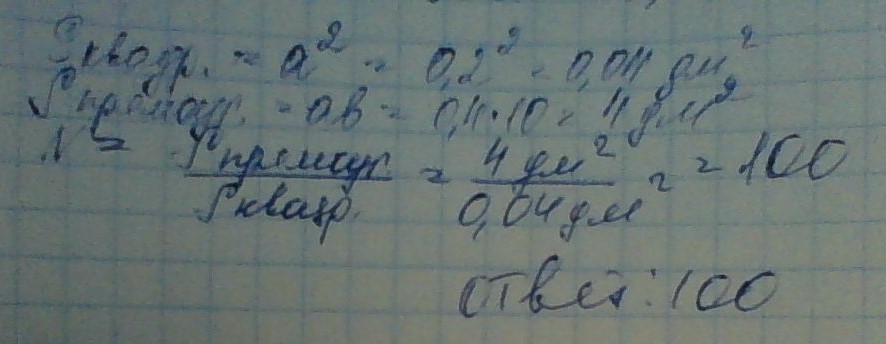 S квадр. = a² = 0,2² = 0,04 дм²
S прямоуг. = ab = 0,4·10 = 4 дм²
N = S прямоуг / S квадр. = 4 дм² / 0,04 дм² = 100
Ответ: 100